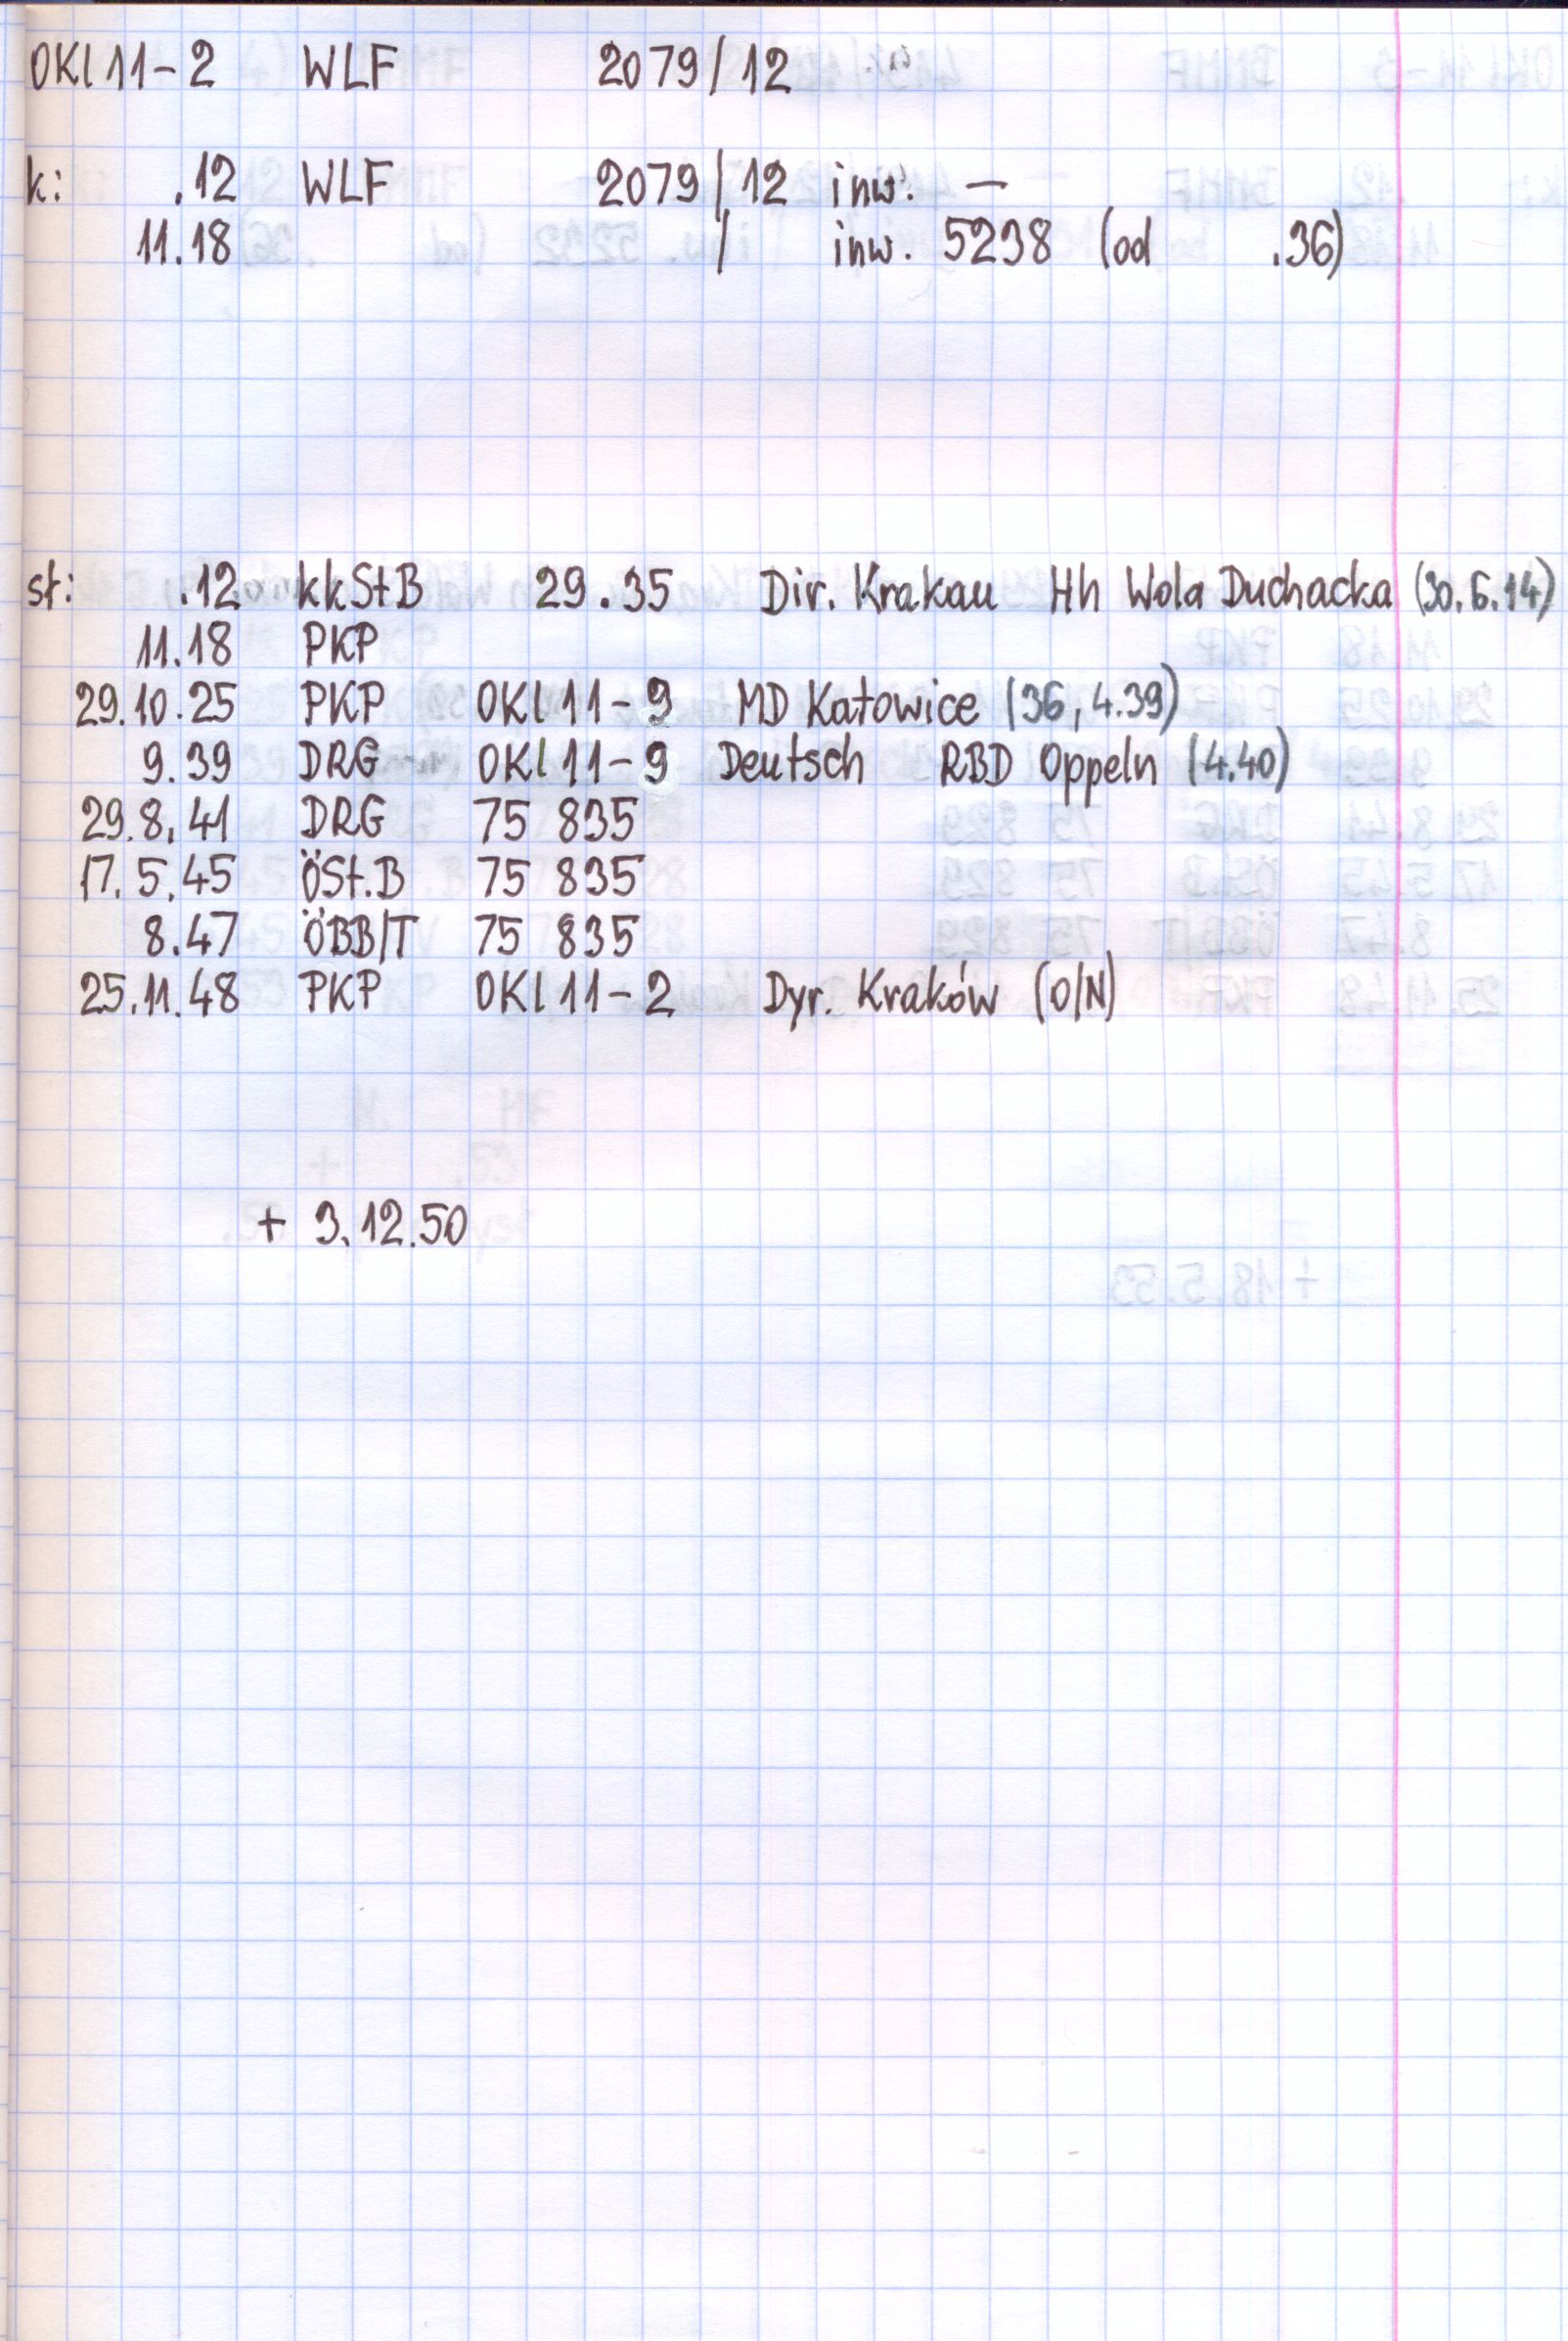 OKl 11-2 WLF 2079/12
k: .12 WLF 2079/12 inw. —
11.18 / inw. 5238 (od .36)
st: .12 kkStB 29.35 Dir. Krakau Hh Wola Duchacka (30.6.14)
11.18 PKP
29.10.25 PKP OKl 11-9 MD Katowice (36, 4.39)
9.39 DRG OKl 11-9 Deutsch RBD Oppeln (4.40)
29.8.41 DRG 75 835
17.5.45 ÖSt.B 75 835
8.47 ÖBB/T 75 835
25.11.48 PKP OKl 11-2 Dyr. Kraków (O/N)
+ 3.12.50